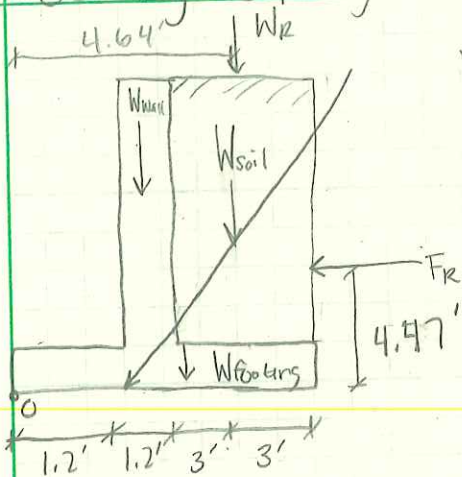 4.64'
WR
Wwall
Wsoil
FR
4.47'
Wfooting
O
1.2' 1.2' 3' 3'